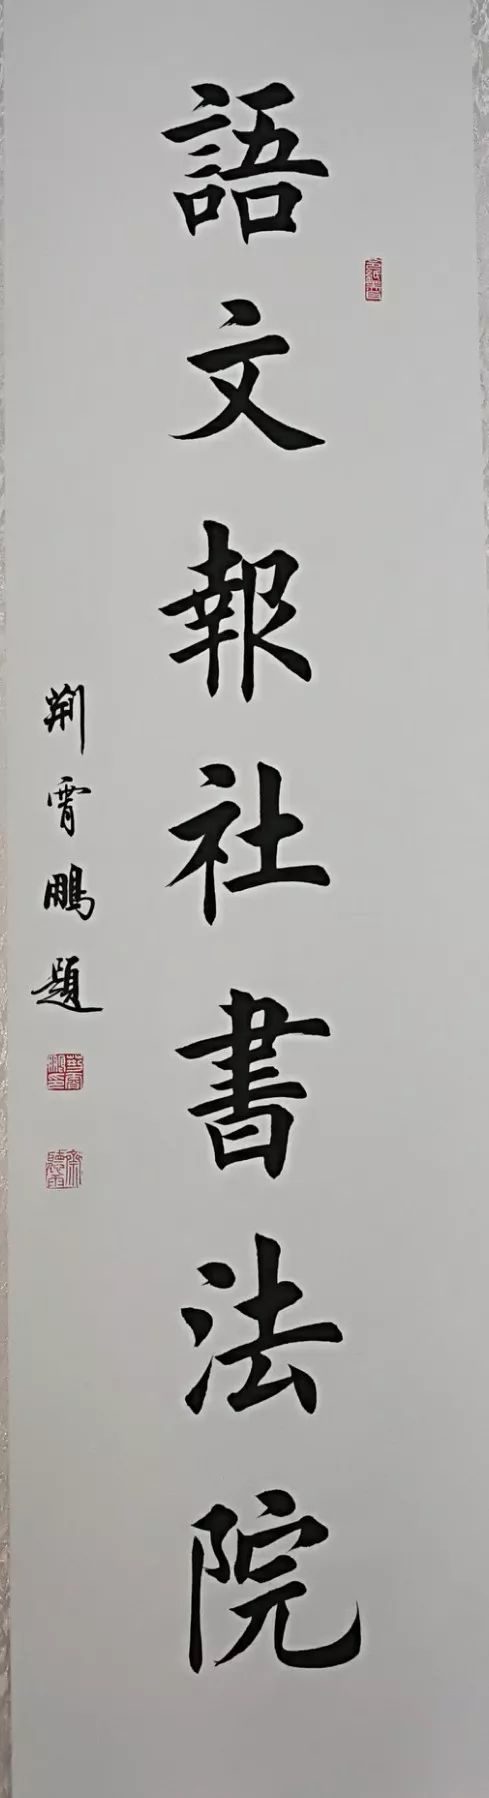 語文報社書法院
荆霄鵬題